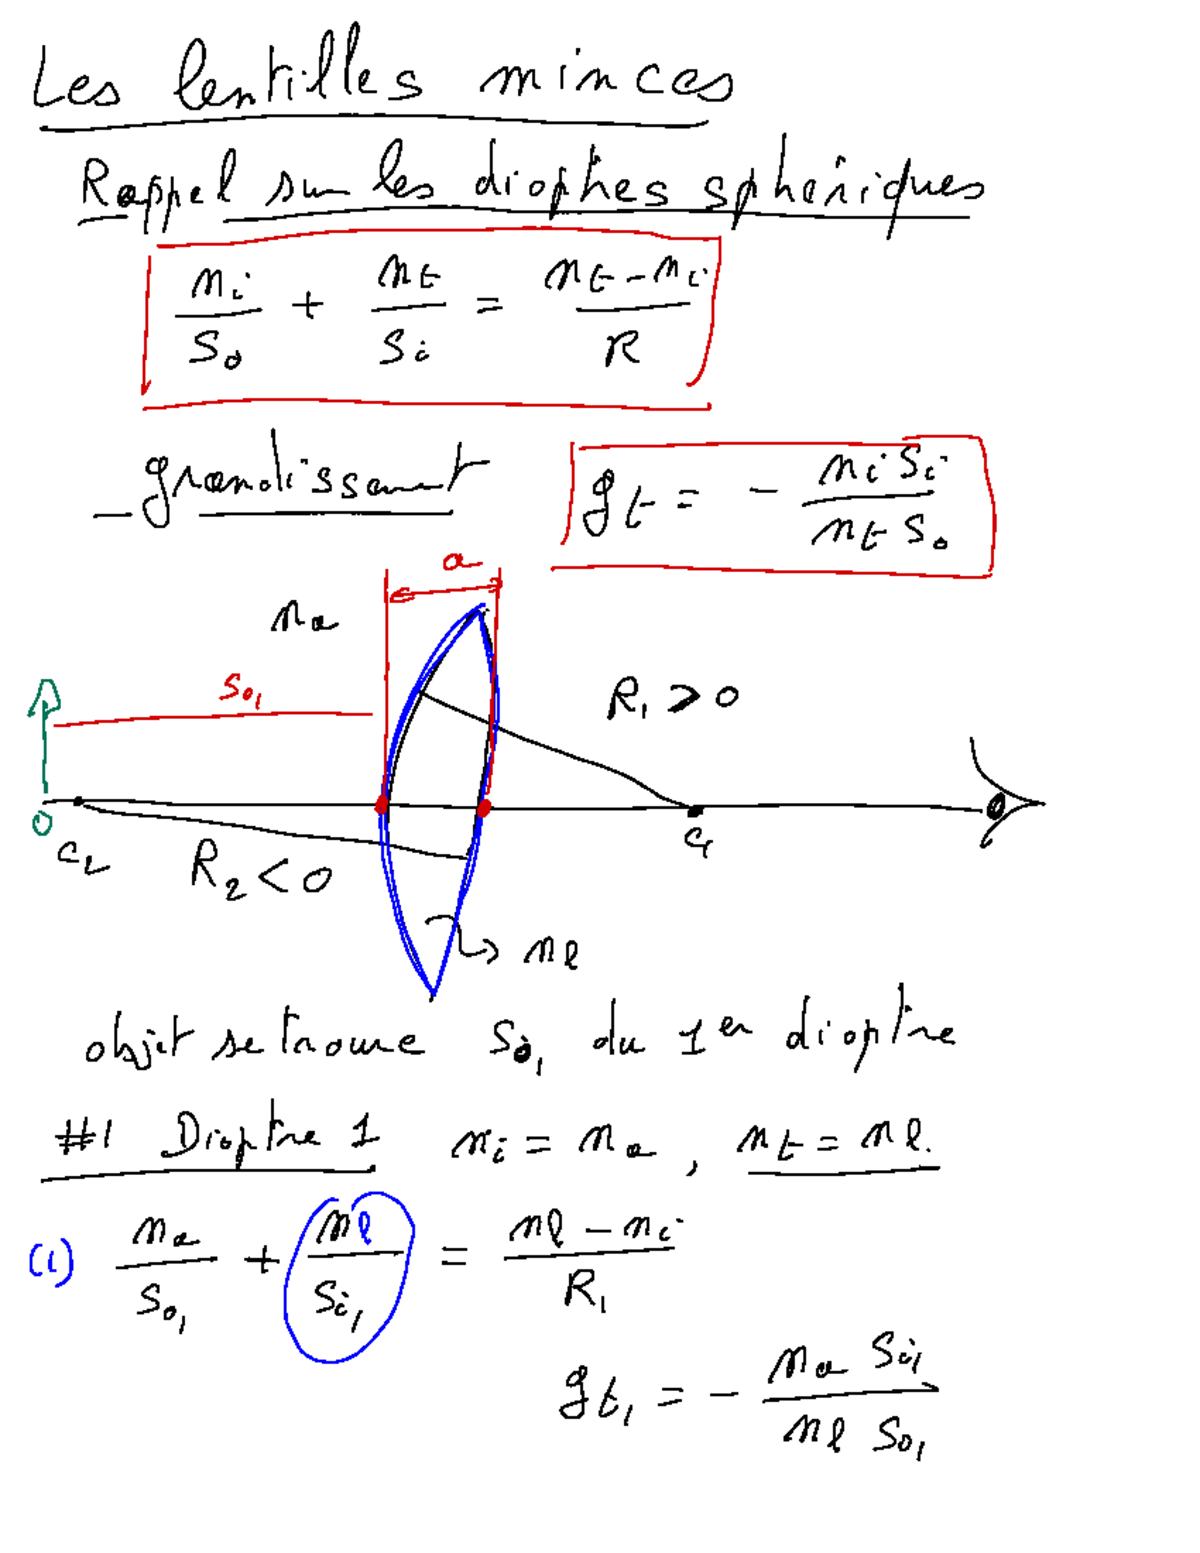 Les lentilles minces
Rappel sur les dioptres sphériques
n_i/s_o + n_t/s_i = (n_t - n_i)/R
- grandissement g_t = - n_i s_i / n_t s_o
a
n_a
s_o1
R_1 > 0
O
C_2
R_2 < 0
C_1
n_l
objet se trouve s_o1 du 1er dioptre
#1 Dioptre 1 n_i = n_a , n_t = n_l.
(1) n_a/s_o1 + n_l/s_i1 = (n_l - n_i)/R_1
g_t1 = - n_a s_i1 / n_l s_o1